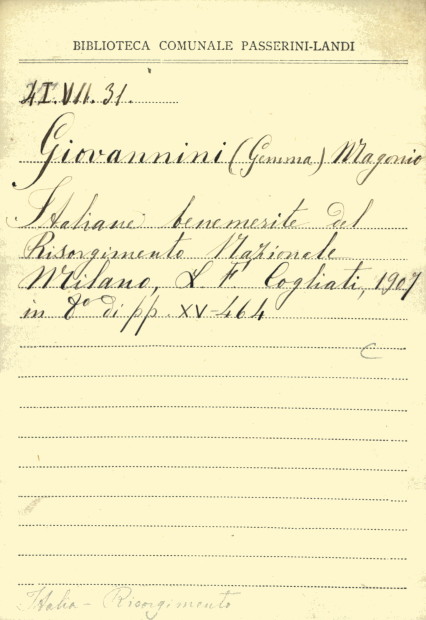 BIBLIOTECA COMUNALE PASSERINI-LANDI
4I.VII.31.
Giovannini (Gemma) Magonio
Italiane benemerite del
Risorgimento Nazionale
Milano, L. F. Cogliati, 1907
in 8° di pp. XV-464
C
Italia - Risorgimento